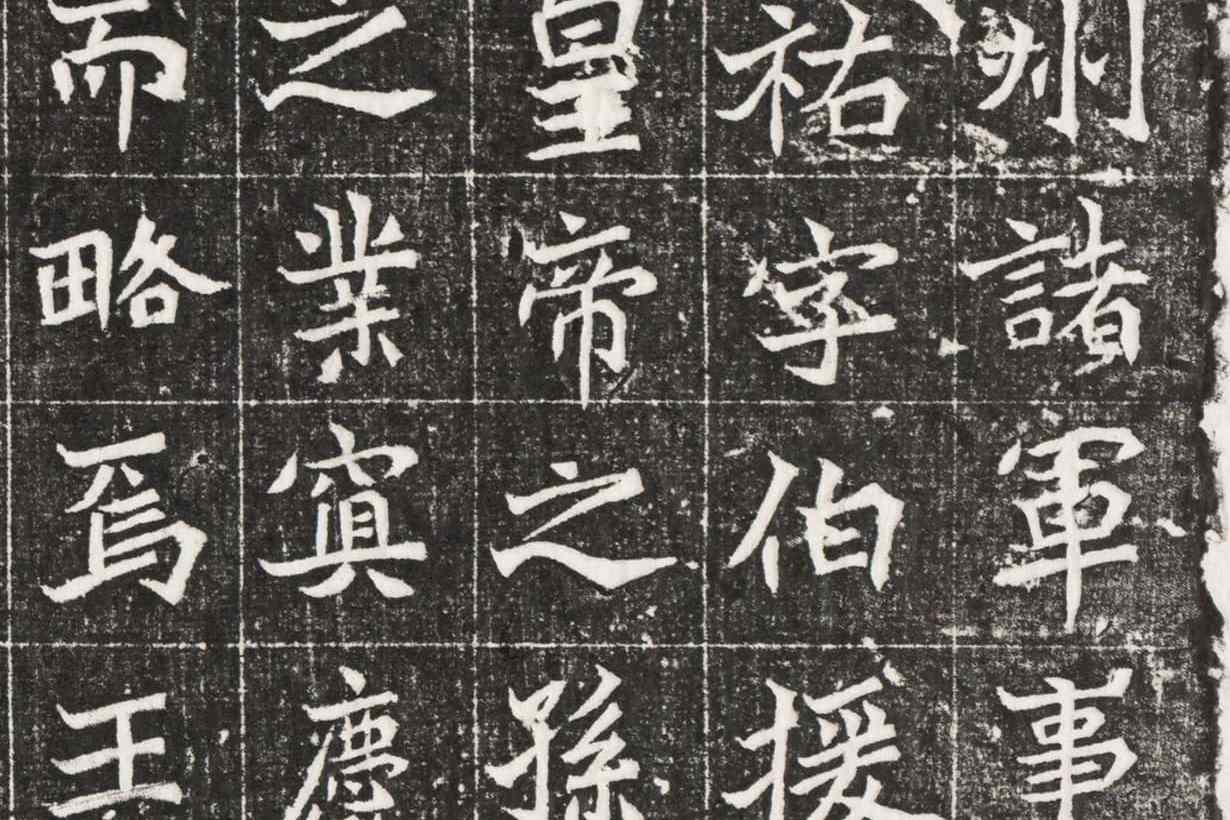 州諸軍事
祐字伯援
皇帝之孫
之業寘慶
而略焉王